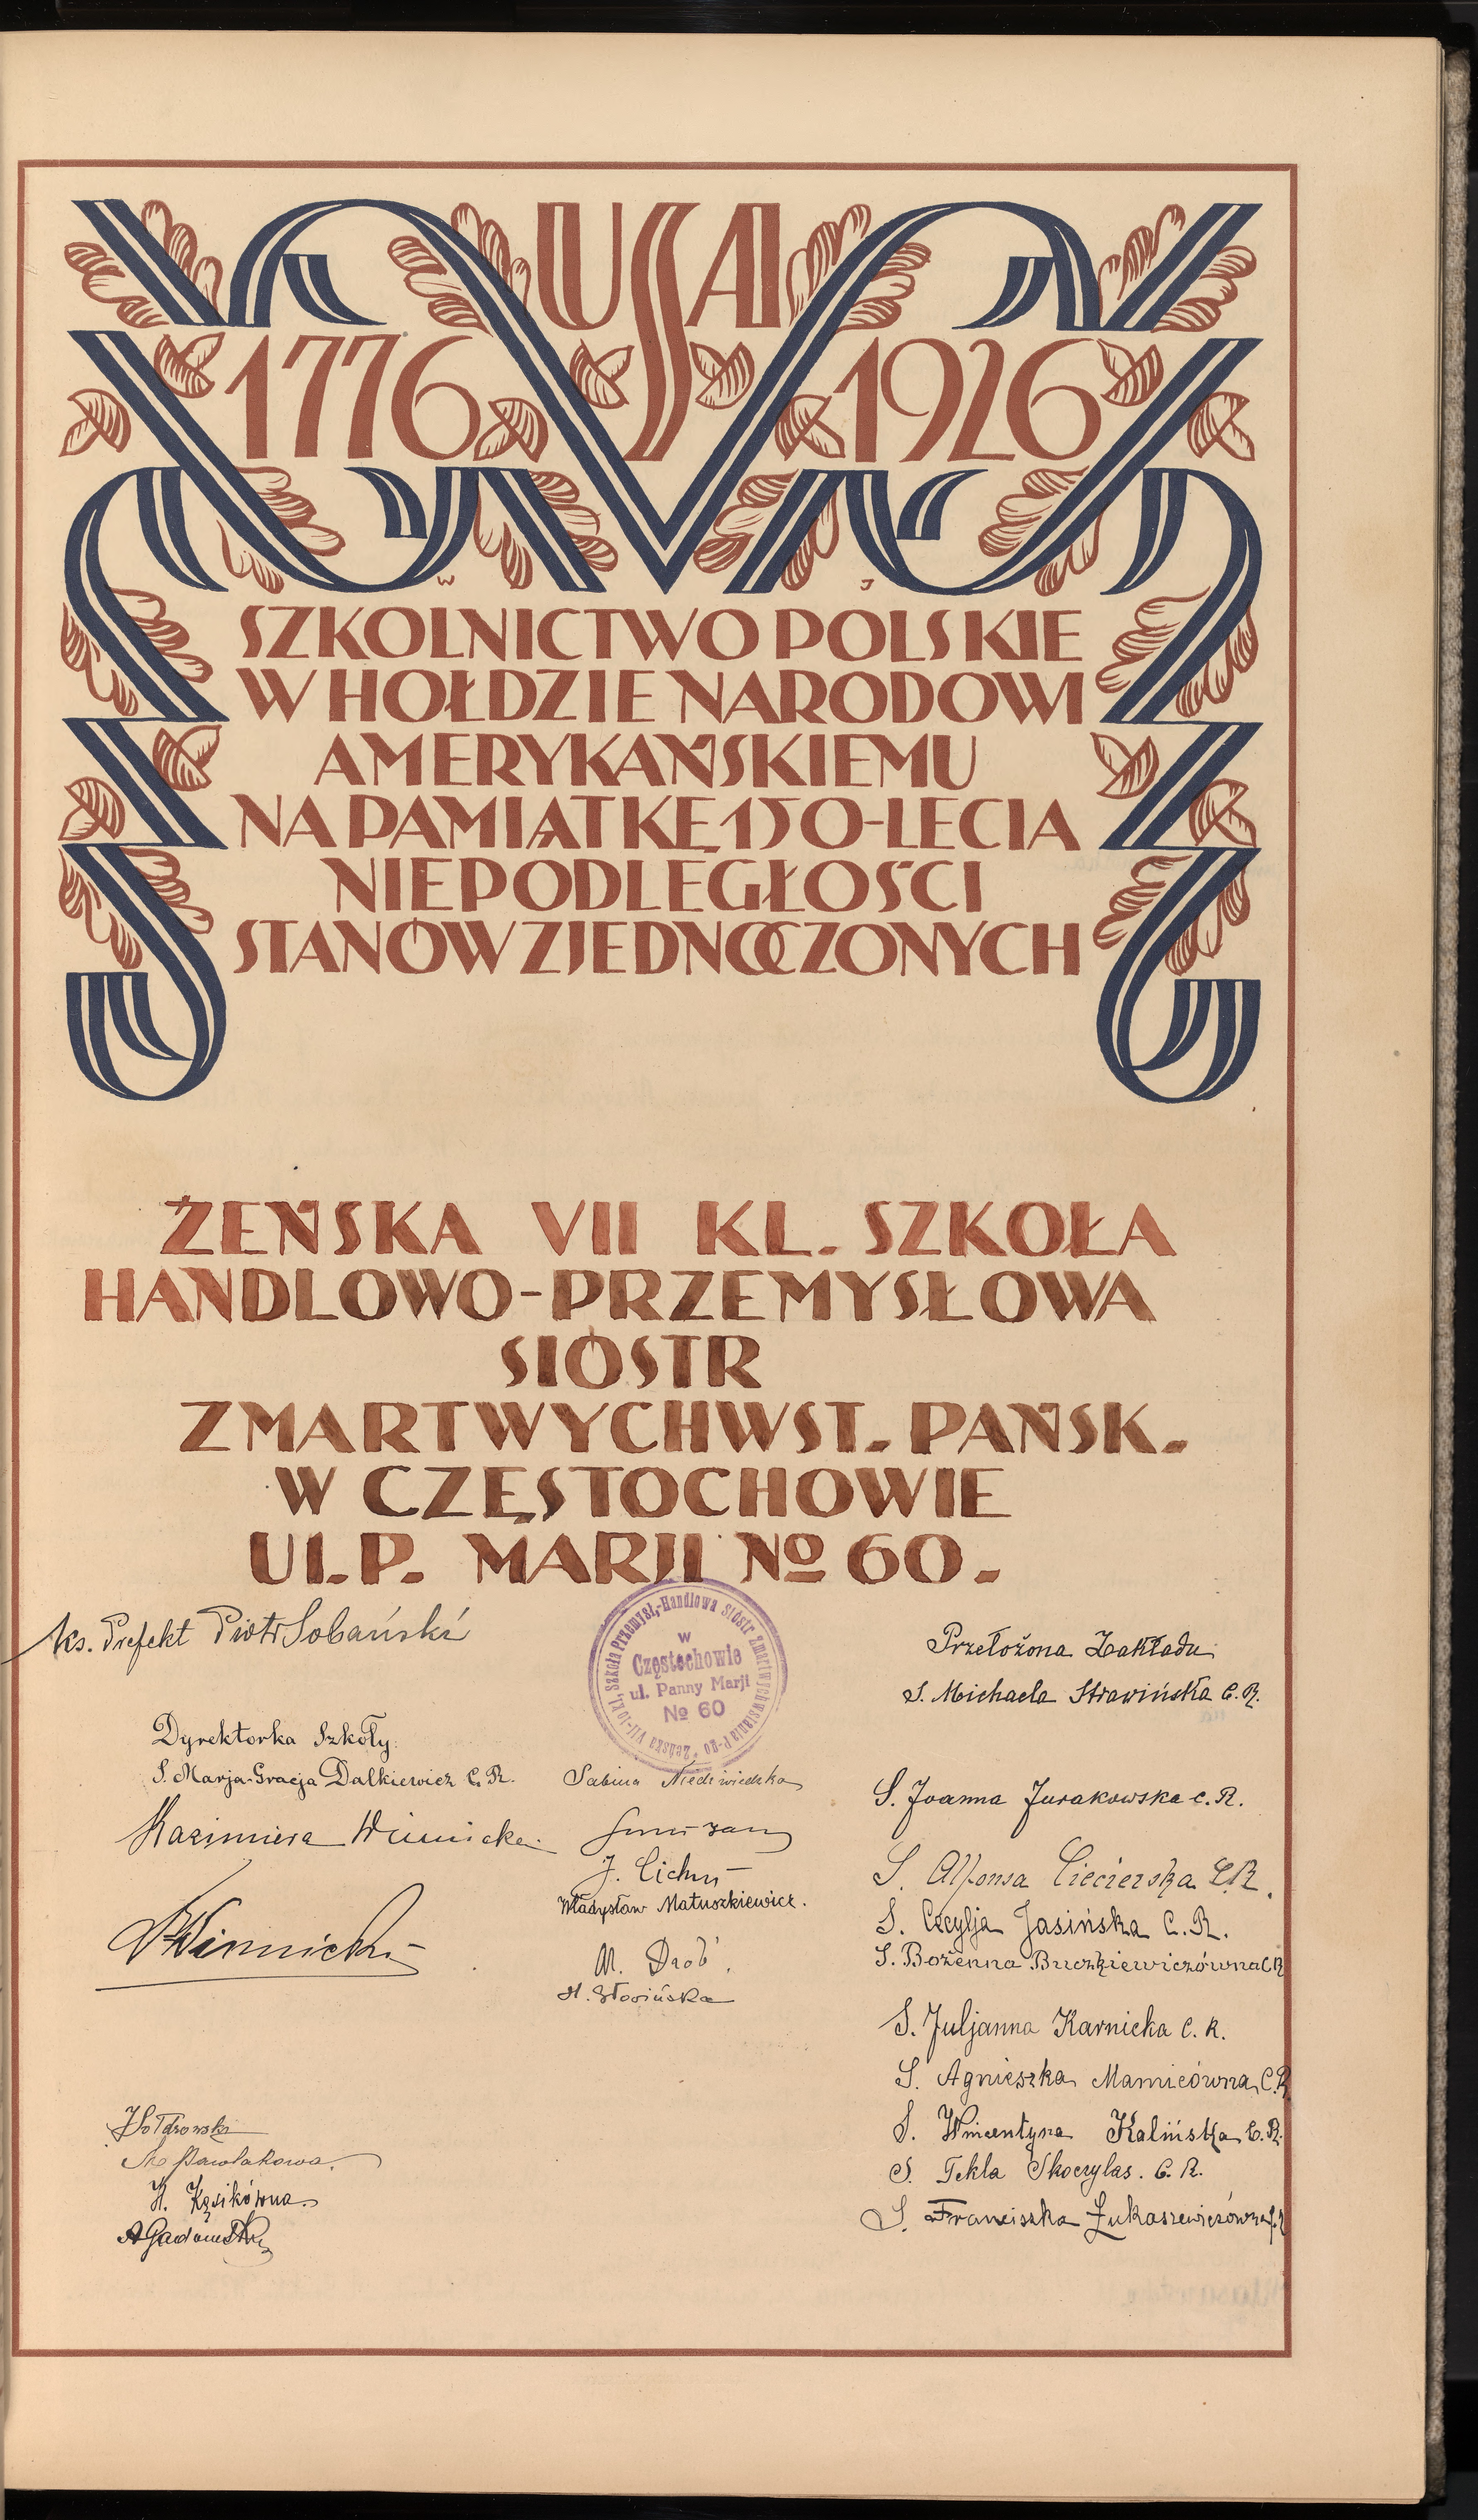 USA
1776 1926
W J
SZKOLNICTWO POLSKIE
W HOŁDZIE NARODOWI
AMERYKAŃSKIEMU
NA PAMIĄTKĘ 150-LECIA
NIEPODLEGŁOŚCI
STANÓW ZJEDNOCZONYCH
ŻEŃSKA VII KL. SZKOŁA
HANDLOWO-PRZEMYSŁOWA
SIÓSTR
ZMARTWYCHWST. PAŃSK.
W CZĘSTOCHOWIE
UL. P. MARJI № 60.
Żeńska VII-io kl. Szkoła Przemysł.-Handlowa Sióstr Zmartwychwstania P-go
w
Częstochowie
ul. Panny Marji
№ 60
Ks. Prefekt Piotr Sobański
Dyrektorka Szkoły
S. Marja-Gracja Dalkiewicz C. R.
Kazimiera Winnicka
Winnicki
Sabina Niedźwiedzka
J. Cichy
Władysław Matuszkiewicz.
M. Drób
H. Słowińska
Przełożona Zakładu
S. Michaela Strawińska C. R.
S. Joanna Jurakowska C. R.
S. Alfonsa Ciecierska C.R.
S. Cecylja Jasińska C. R.
S. Bożenna Buczkiewiczówna C R
S. Juljanna Karnicka C. R.
S. Agnieszka Mamicówna C.R
S. Wincentyna Kalińska C. R.
S. Tekla Skoczylas. C. R.
S. Franciszka Łukaszewiczówna C.R
Pawlakowa.
H. Kęsikówna